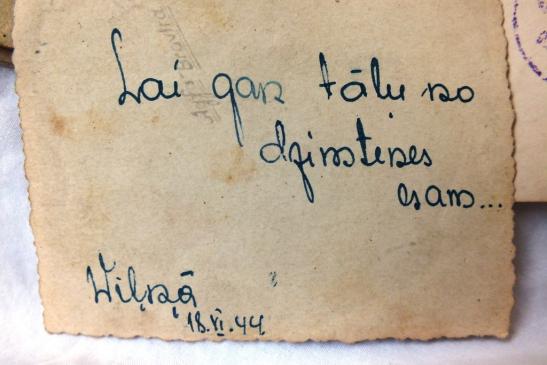 Lai gan tālu no
dzimtenes
esam...
Viļņā
18.VI.44